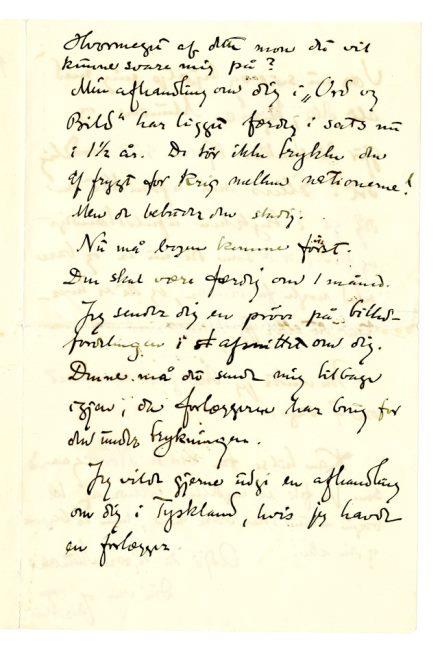 Hvormeget af dette mon du vil
kunne svare mig på?
Min afhandling om dig i „Ord og
Bild“ har ligget færdig i sats nu
i 1½ år. De tör ikke trykke den
af frygt for krig mellem nationerne!
Men de bebuder den stadig.
Nu må bogen komme först.
Den skal være færdig om 1 måned.
Jeg sender dig en pröve på billed-
fordelingen i et afsnittet om dig.
Denne må du sende mig tilbage
igjen, da forlæggeren har brug for
den under trykningen.
Jeg vilde gjerne udgi en afhandling
om dig i Tyskland, hvis jeg havde
en forlægger.